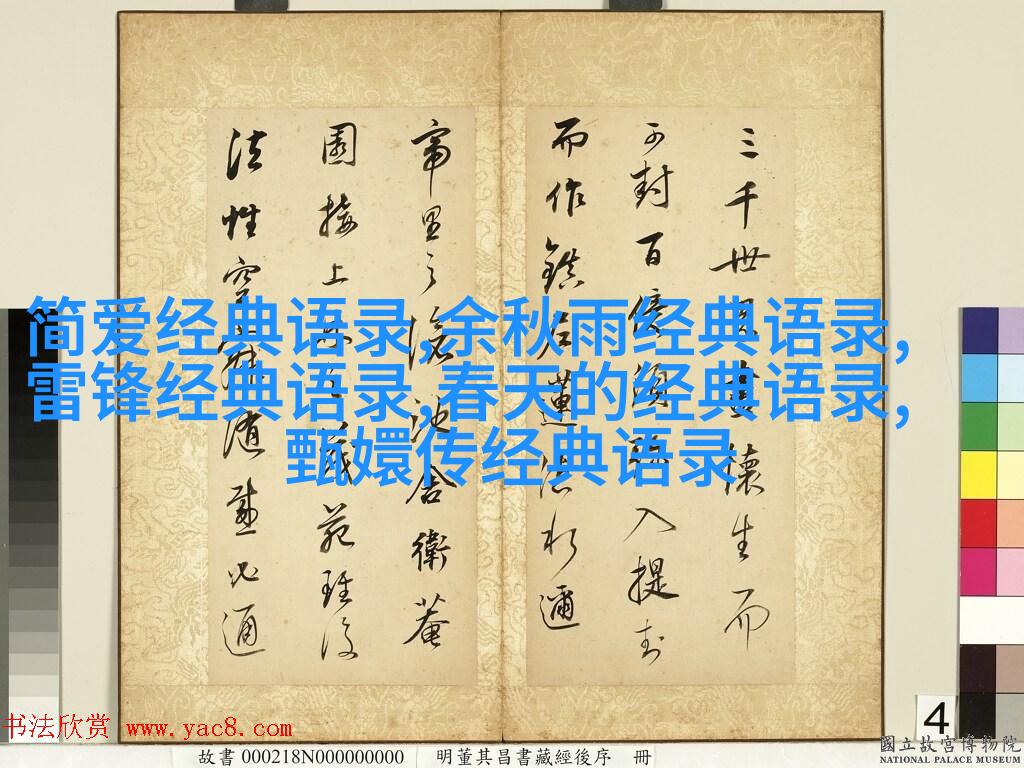 三千世懷生而
可封百億入提封
而作鎮蓮邇
帝里之池舍衛菴
園接上苑
法性空隨感必通
简爱经典语录,余秋雨经典语录,
雷锋经典语录,春天的经典语录,
甄嬛传经典语录
书法欣赏 www.yac8.com
故書 000218N000000000 明董其昌書藏經後序 冊
4
國立故宮博物院
NATIONAL PALACE MUSEUM